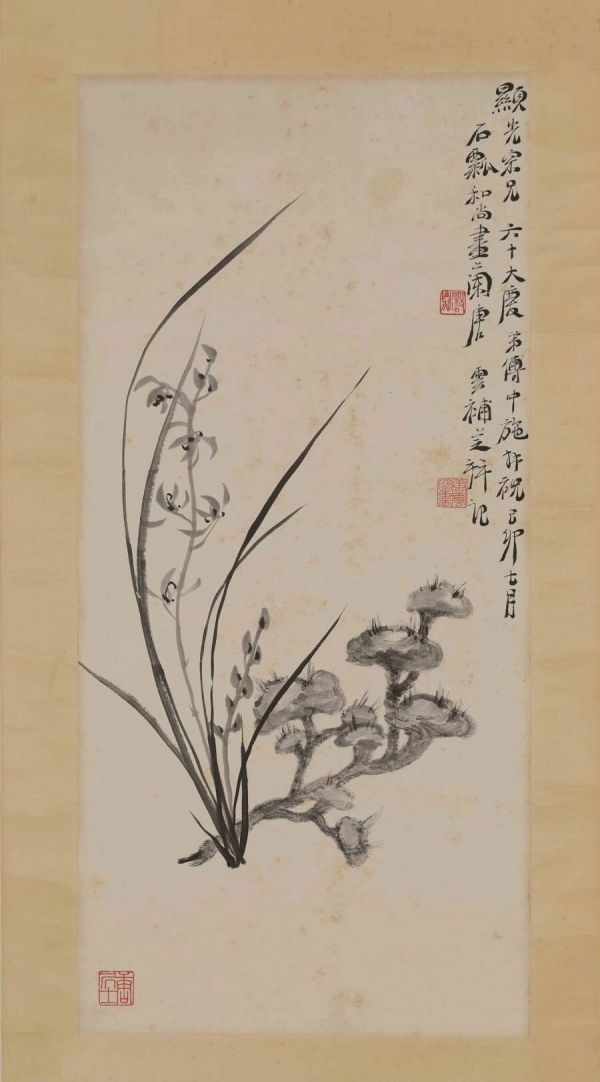 顯光宗兄六十大慶弟傅中施拜祝己卯七月
石瓢和尚畫蘭唐雲補芝并記